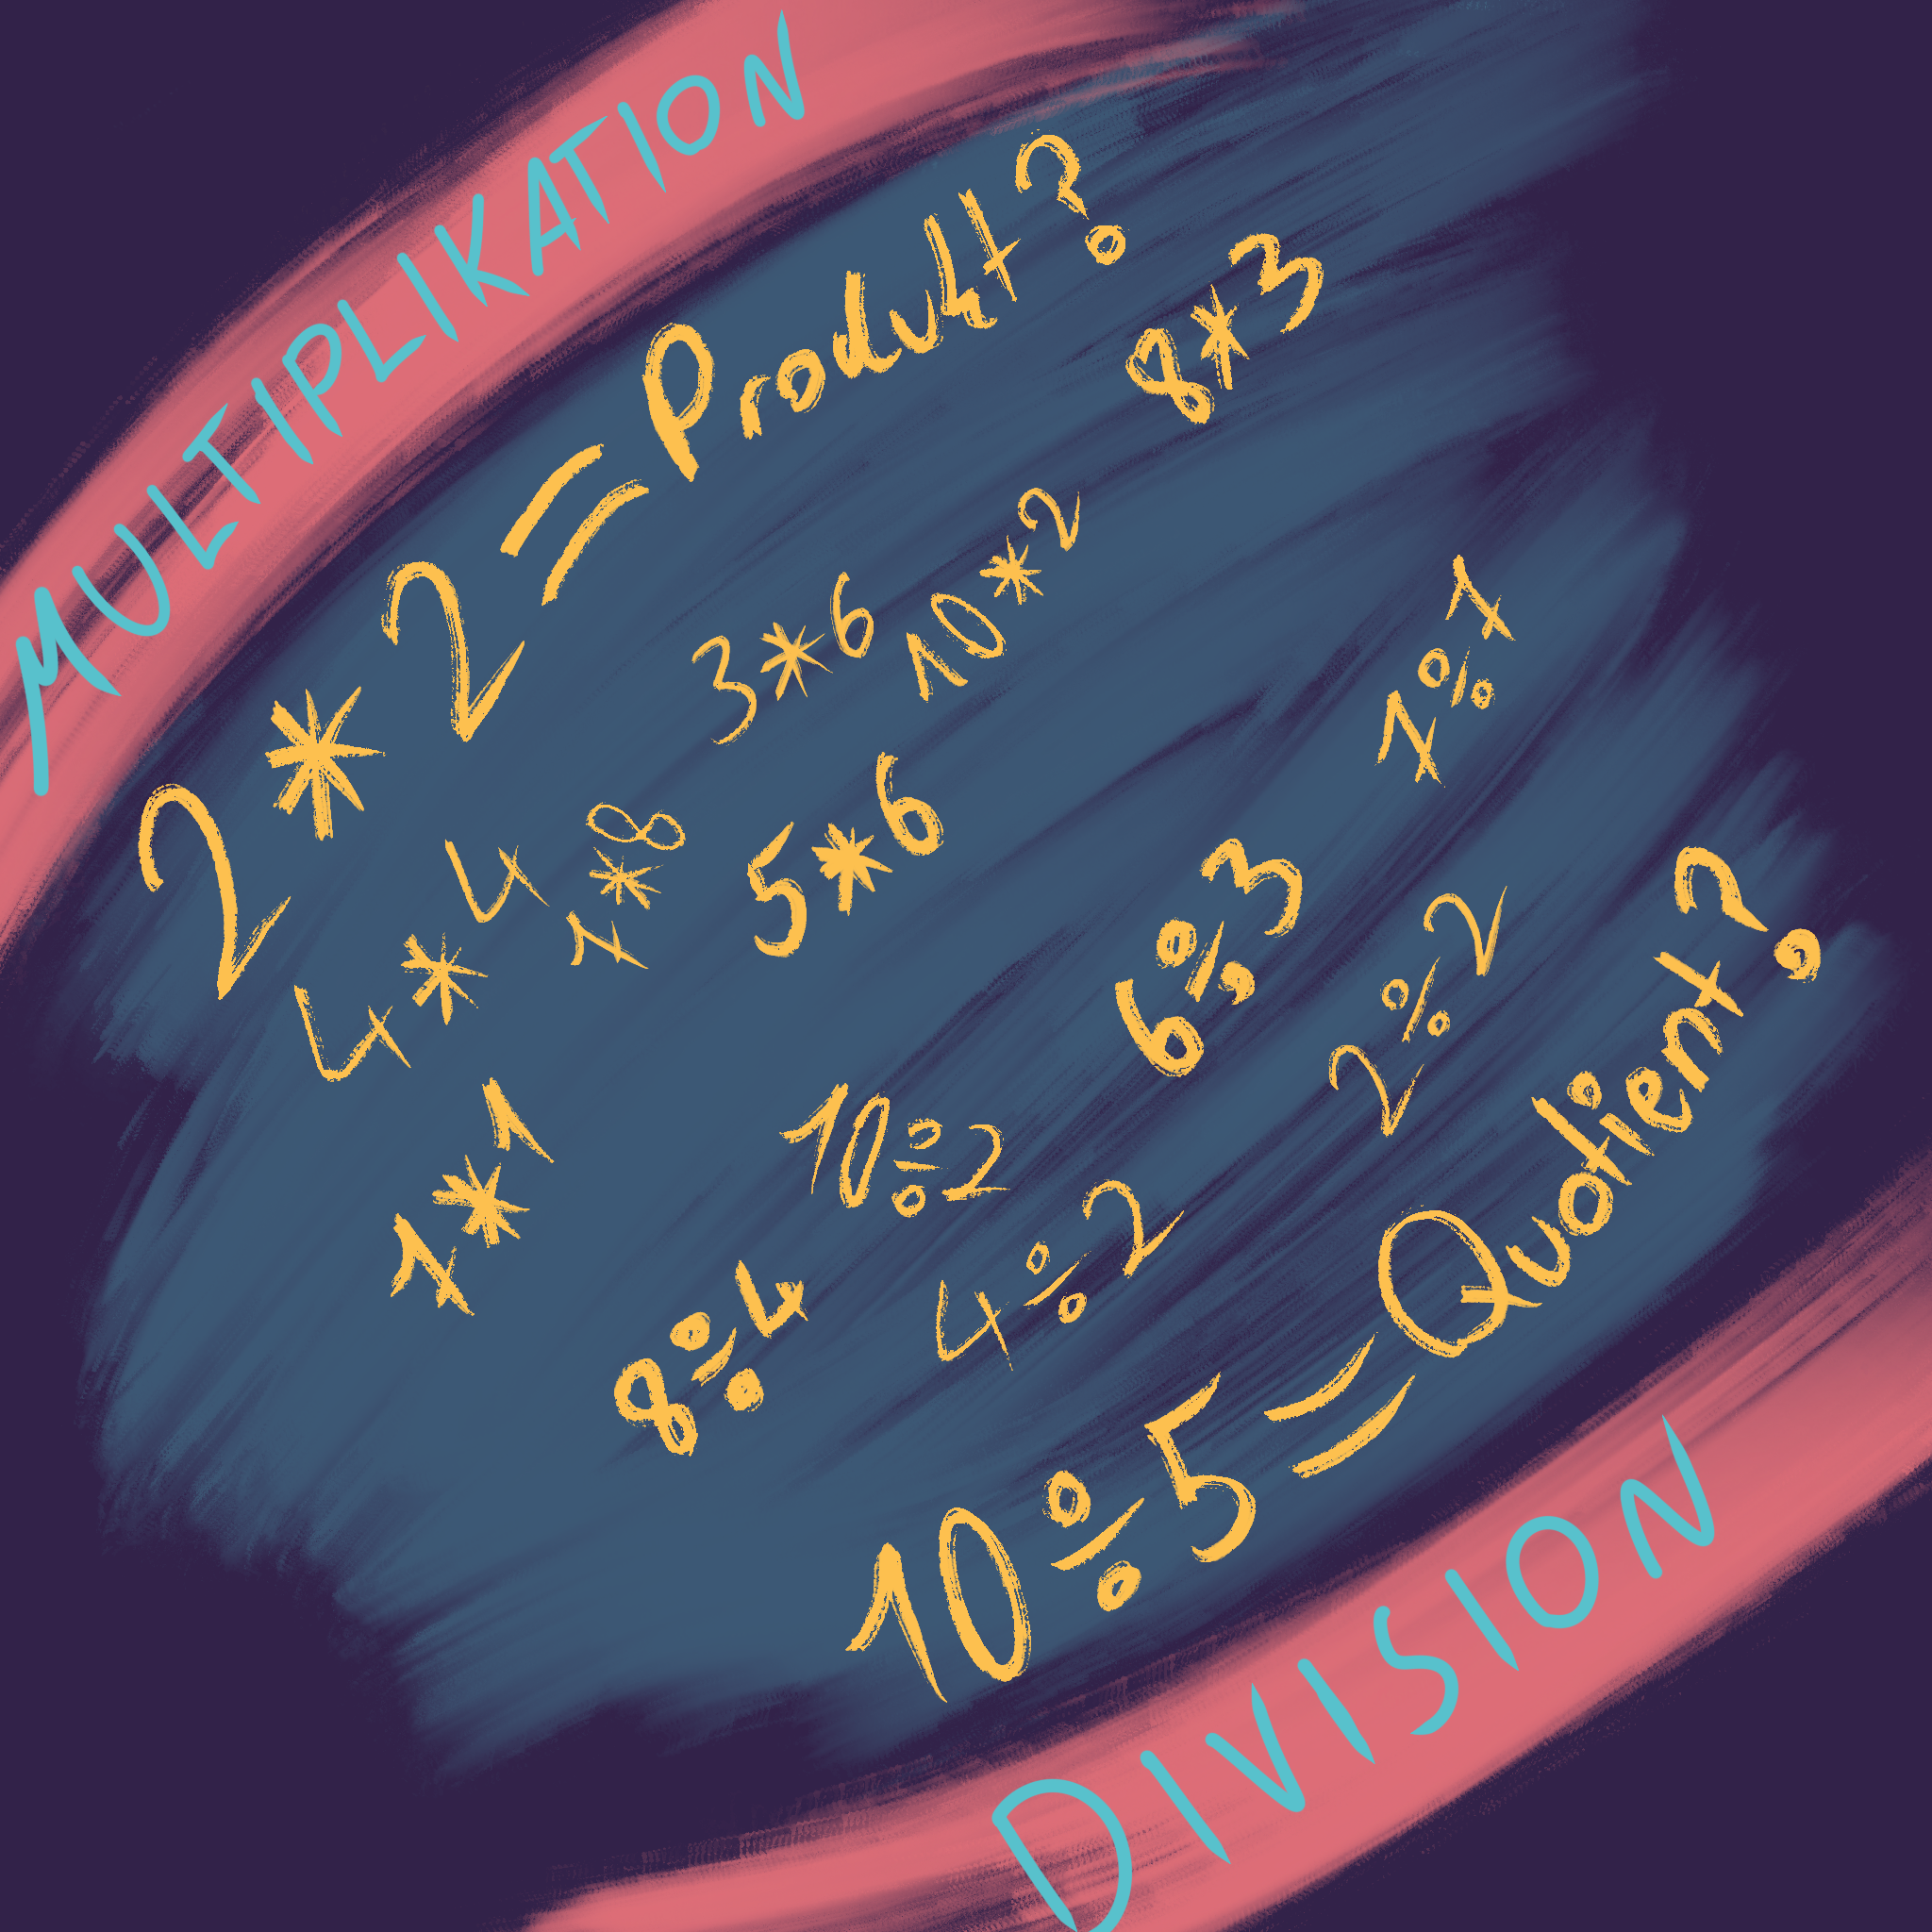 MULTIPLIKATION
2*2=Produkt?
8*3
3*6
10*2
4*4
1*8
5*6
1*1
1÷1
6÷3
2÷2
10÷2
8÷4
4÷2
10÷5=Quotient?
DIVISION